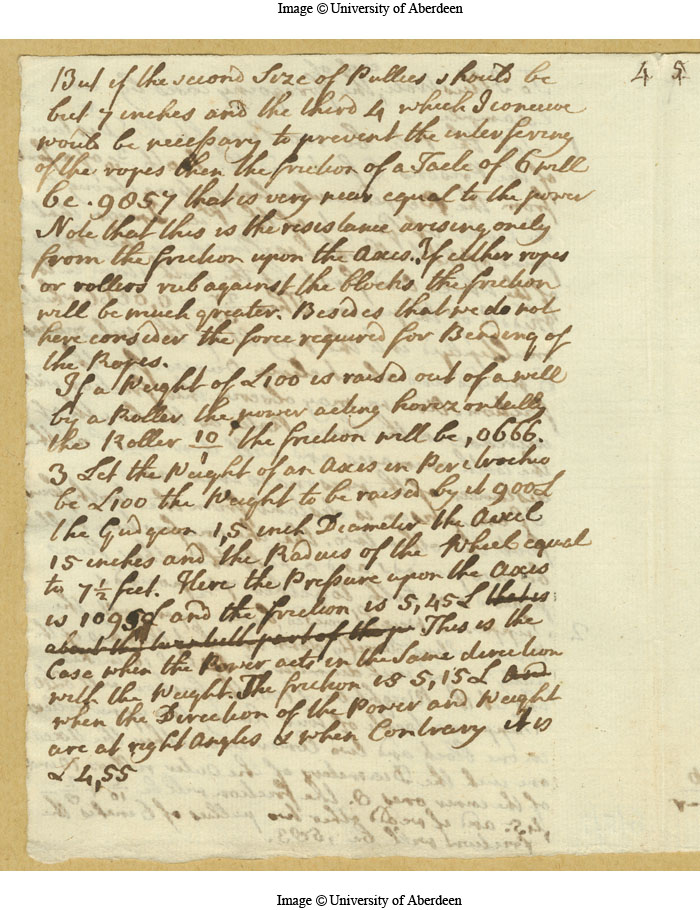 Image © University of Aberdeen
4 5
But if the second Size of Pullies should be
but 7 inches and the third 4 which I conceive
would be necessary to prevent the interfering
of the ropes then the friction of a Tacle of 6 will
be .9857 that is very near equal to the power
Note that this is the resistance arising onely
from the friction upon the Axes. If either ropes
or rollers rub against the blocks the friction
will be much greater. Besides that we do not
here consider the force required for Bending of
the Ropes.
If a Weight of £100 is raised out of a well
by a Roller the power acting horizontally
the Roller 10/1 the friction will be ,0666.
3 Let the Weight of an Axis in Peritrochio
be £100 the Weight to be raised by it 900£
the Gudgeon 1,5 inch Diameter the Axel
15 inches and the Radius of the Wheel equal
to 7½ feet. Here the Pressure upon the Axis
is 109 £ and the friction is 5,45£ that is
about the twentieth part of the This is the
Case when the Power acts in the Same direction
with the Weight. The friction is 5,15£ and
when the Direction of the Power and Weight
are at right Angles & when Contrary it is
£4,55
Image © University of Aberdeen